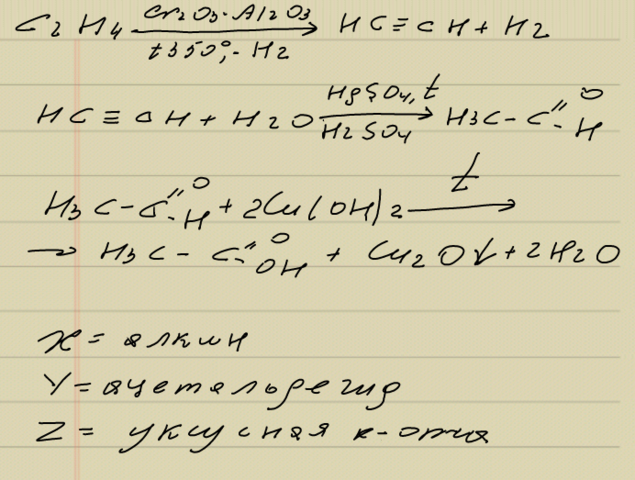 C2H4 Cr2O3·Al2O3 t350°,-H2 → HC≡CH + H2
HC≡CH + H2O HgSO4, t H2SO4 → H3C-C=O-H
H3C-C=O-H + 2Cu(OH)2 t →
→ H3C-C=O-OH + Cu2O↓ + 2H2O
X = алкин
Y = ацетальдегид
Z = уксусная к-